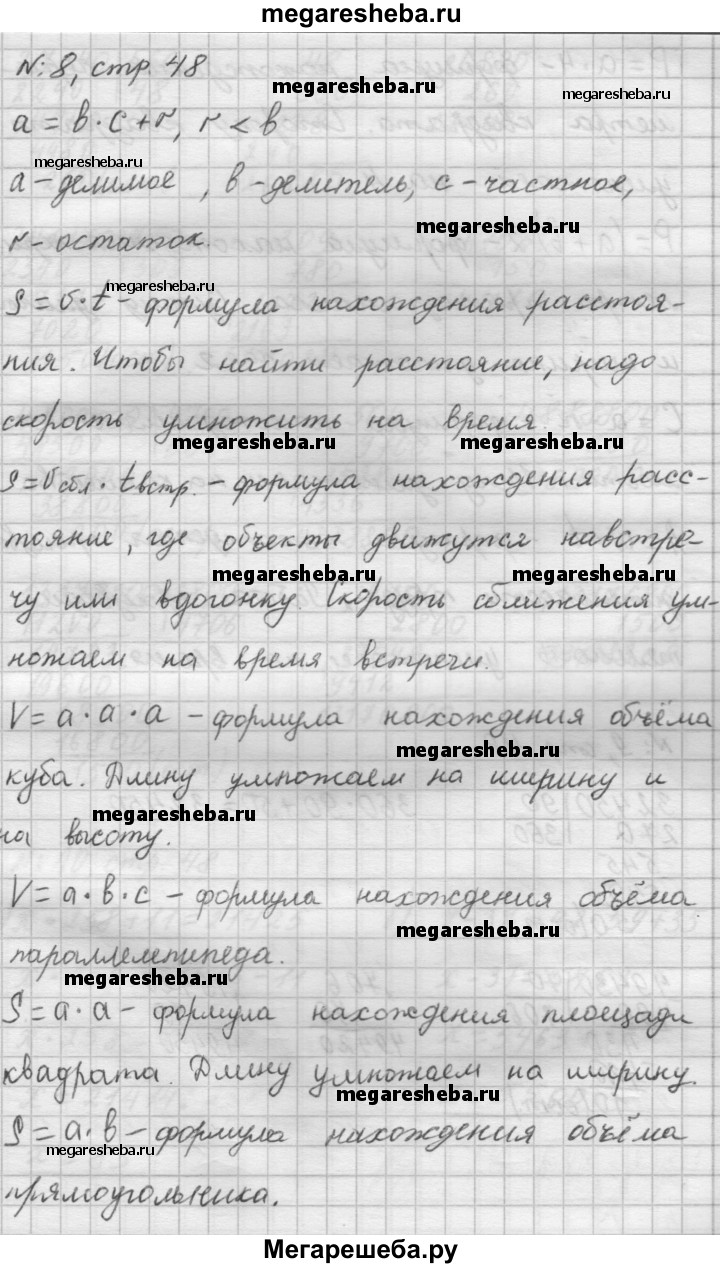 megaresheba.ru
№8, стр. 48
megaresheba.ru
megaresheba.ru
a = b · c + r, r < b
megaresheba.ru
a - делимое, b - делитель, c - частное,
megaresheba.ru
r - остаток.
megaresheba.ru
S = v · t - формула нахождения расстоя-
ния. Чтобы найти расстояние, надо
скорость умножить на время.
megaresheba.ru megaresheba.ru
S = v сбл · t встр. - формула нахождения расс-
тояние, где объекты движутся навстре-
megaresheba.ru megaresheba.ru
чу или вдогонку Скорость сближения ум-
ножаем на время встречи.
V = a · a · a - формула нахождения объёма
megaresheba.ru
куба. Длину умножаем на ширину и
megaresheba.ru
на высоту.
V = a · b · c - формула нахождения объёма
megaresheba.ru
параллелепипеда.
megaresheba.ru
S = a · a - формула нахождения площади
квадрата. Длину умножаем на ширину.
megaresheba.ru
S = a · b - формула нахождения объёма
megaresheba.ru
прямоугольника.
Мегарешеба.ру